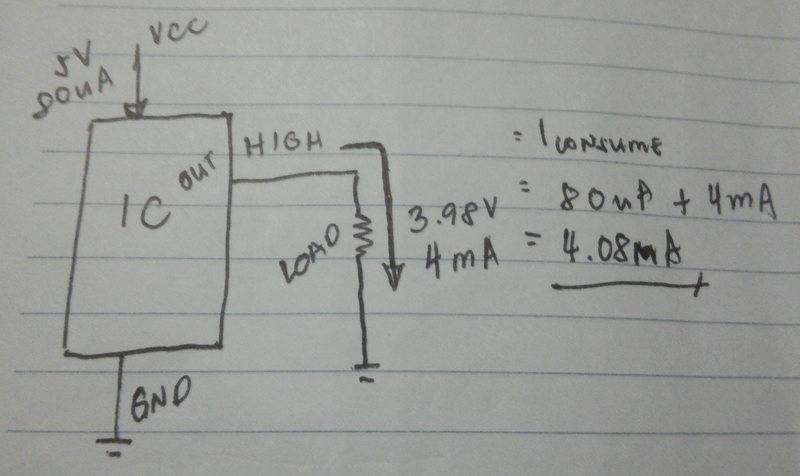 VCC
5V
80uA
HIGH
OUT
IC
LOAD
3.98V
4mA
GND
= I CONSUME
= 80uA + 4mA
= 4.08mA